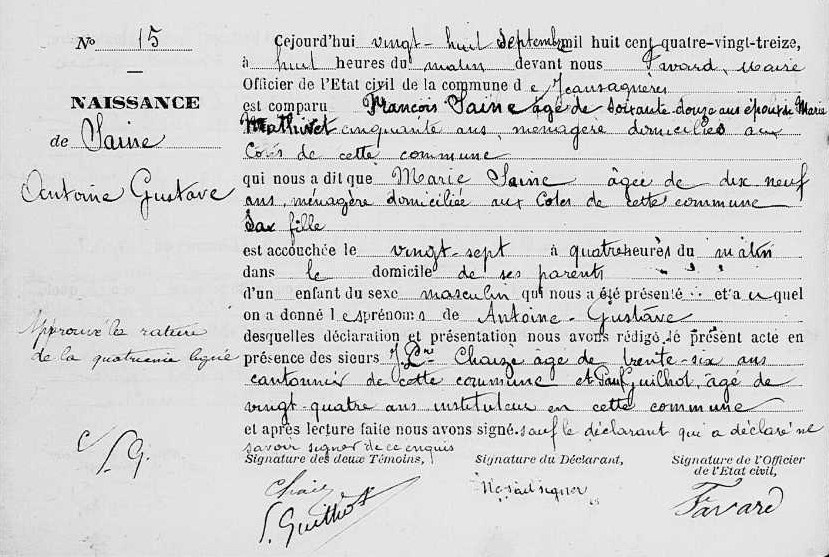 N° 15
NAISSANCE
de Saine
Antoine Gustave
Approuvé la rature
de la quatrième ligne
P.G.
Cejourd'hui vingt-huit Septembre mil huit cent quatre-vingt-treize,
à huit heures du matin devant nous Favard, Maire
Officier de l'Etat civil de la commune d e Jeansagnière
est comparu François Saine âgé de soixante-douze ans époux de Marie
Mathivet cinquante ans, ménagère domiciliés aux
Côtes de cette commune
qui nous a dit que Marie Saine âgée de dix neuf
ans, ménagère domiciliée aux Côtes de cette commune
Sa fille
est accouchée le vingt-sept à quatre heures du matin
dans le domicile de ses parents
d'un enfant du sexe masculin qui nous a été présenté et a u quel
on a donné l es prénoms de Antoine-Gustave
desquelles déclaration et présentation nous avons rédigé le présent acte en
présence des sieurs Chaize âgé de trente-six ans
cantonnier de cette commune et Paul Guilhot, âgé de
vingt-quatre ans instituteur en cette commune
et après lecture faite nous avons signé. sauf le déclarant qui a déclaré ne
savoir signer de ce enquis
Signature des deux Témoins,
Signature du Déclarant,
Signature de l'Officier
de l'Etat civil,
Chaize
P. Guilhot
Ne sait signer
Favard